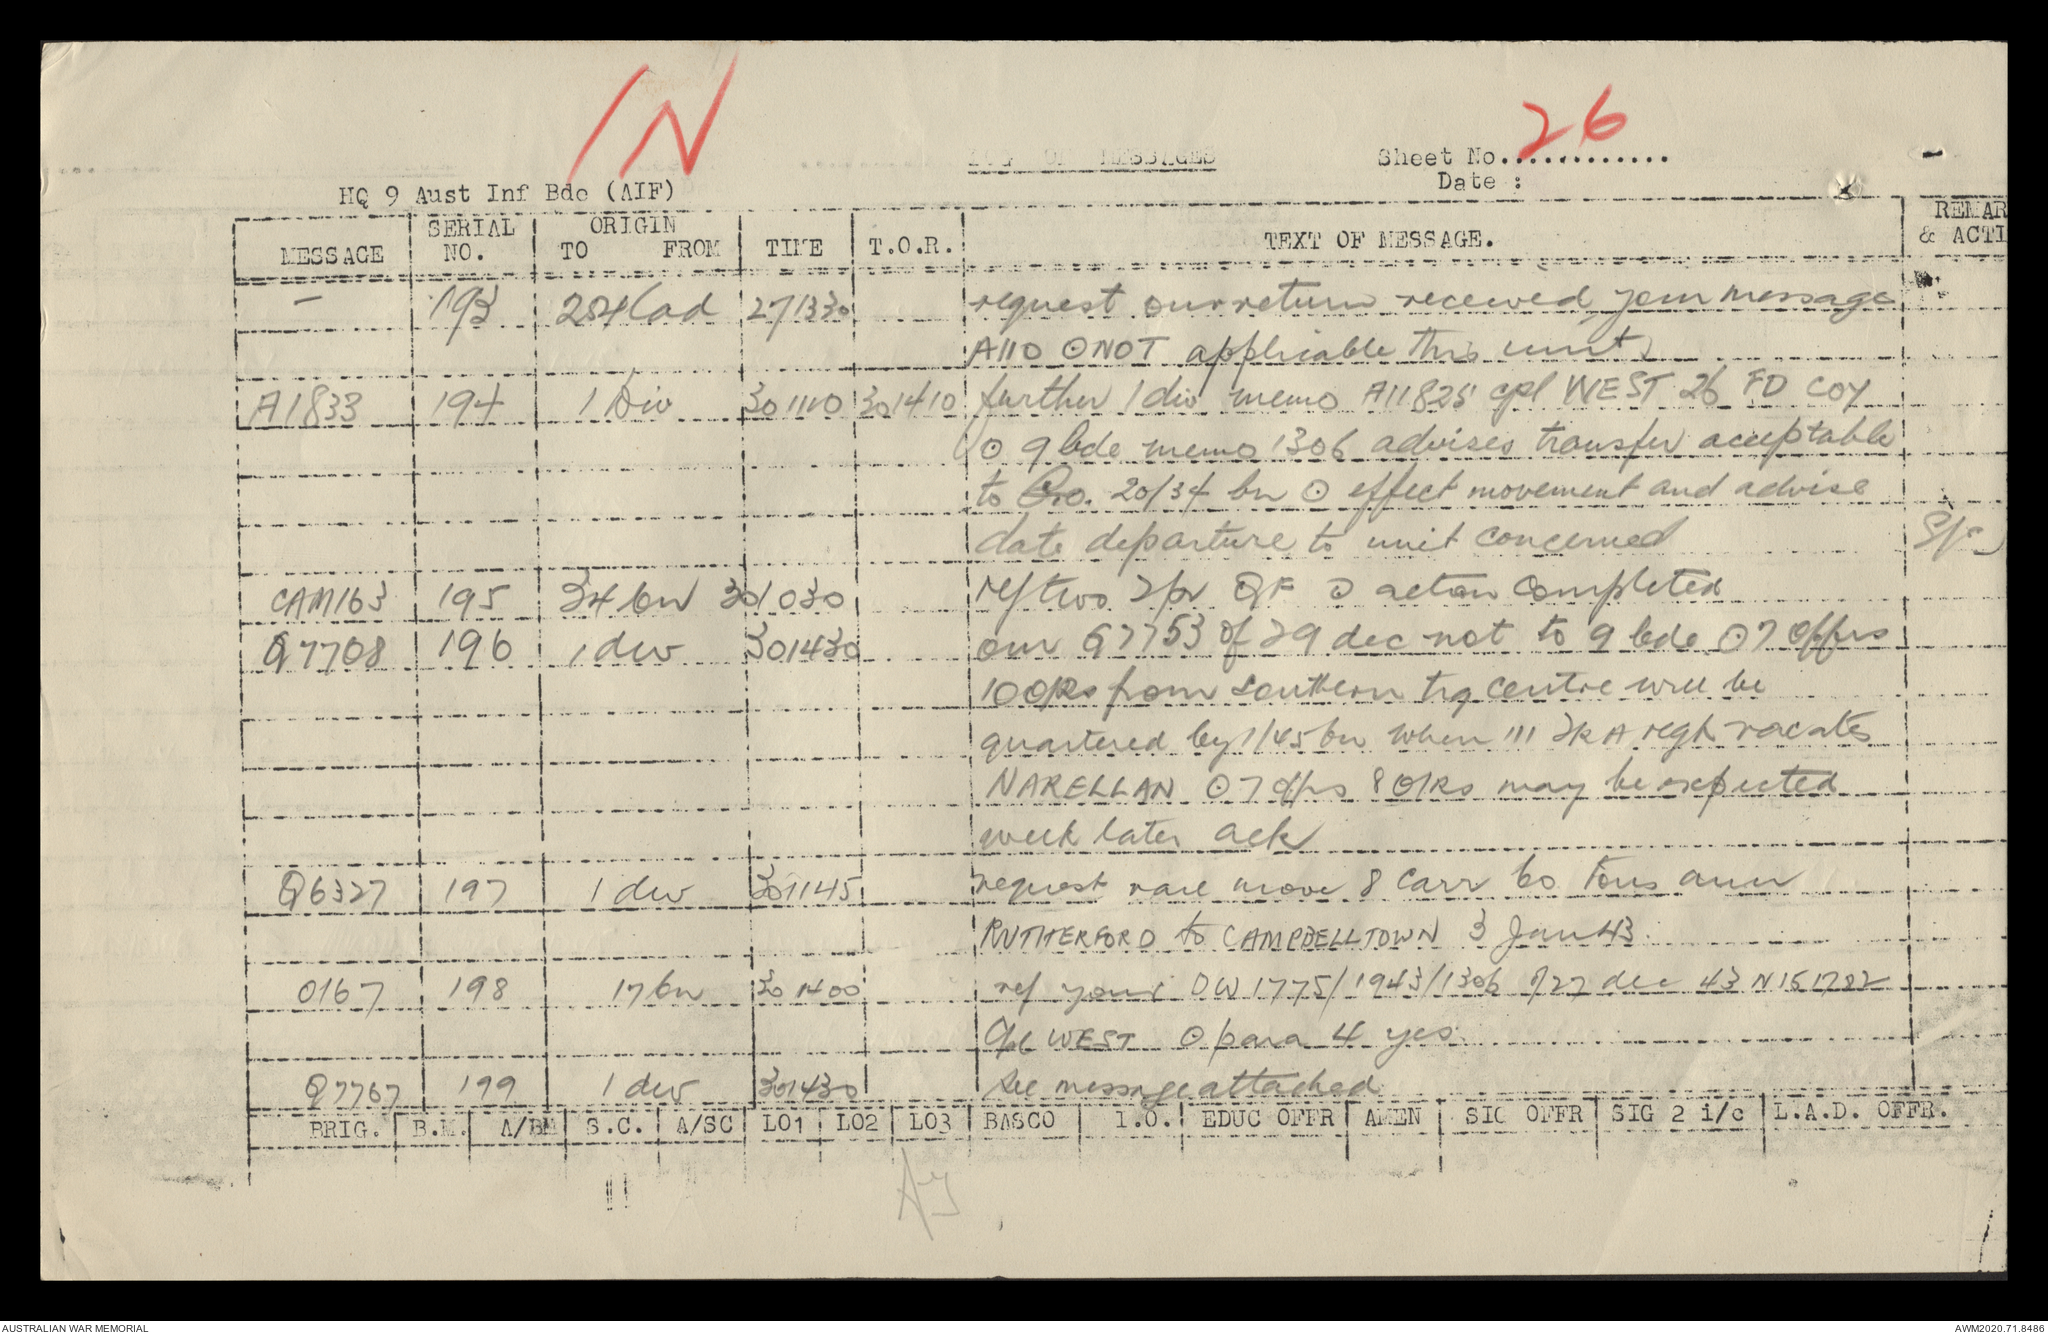 IN
LOG OF MESSAGES
Sheet No............. 26
Date :
HQ 9 Aust Inf Bde (AIF)
MESSAGE SERIAL NO. ORIGIN TO FROM TIME T.O.R. TEXT OF MESSAGE. REMAR & ACTI
- 193 204 Lad 271330 request our return received your message
A110 ⊙ NOT applicable this unit
A1833 194 1 Div 301110 301410 further 1 div memo A11825 cpl WEST 26 FD COY
⊙ 9 bde memo 1306 advises transfer acceptable
to 20/34 bn ⊙ effect movement and advise
date departure to unit concerned
CAM163 195 34 bn 301030 ref two 2pr QF ⊙ action completed
Q7708 196 1 div 301430 our Q7753 of 29 dec not to 9 bde ⊙ 7 offrs
10 O/Rs from southern trg centre will be
quartered by 1/45 bn when 111 regt vacates
NARELLAN ⊙ 7 offrs 8 O/Rs may be expected
week later ack
Q6327 197 1 div 301145 request rail move 8 Carr 60 Tons amn
RUTHERFORD to CAMPBELLTOWN 3 Jan 43.
0167 198 17 bn 301400 ref your DW1775/1943/1306 of 27 dec 43 N151782
Cpl WEST ⊙ para 4 yes.
Q7767 199 1 div 301430 See message attached
BRIG. B.M. A/BM S.C. A/SC LO1 LO2 LO3 BASCO I.O. EDUC OFFR AMEN SIG OFFR SIG 2 i/c L.A.D. OFFR.
AUSTRALIAN WAR MEMORIAL
AWM2020.71.8486